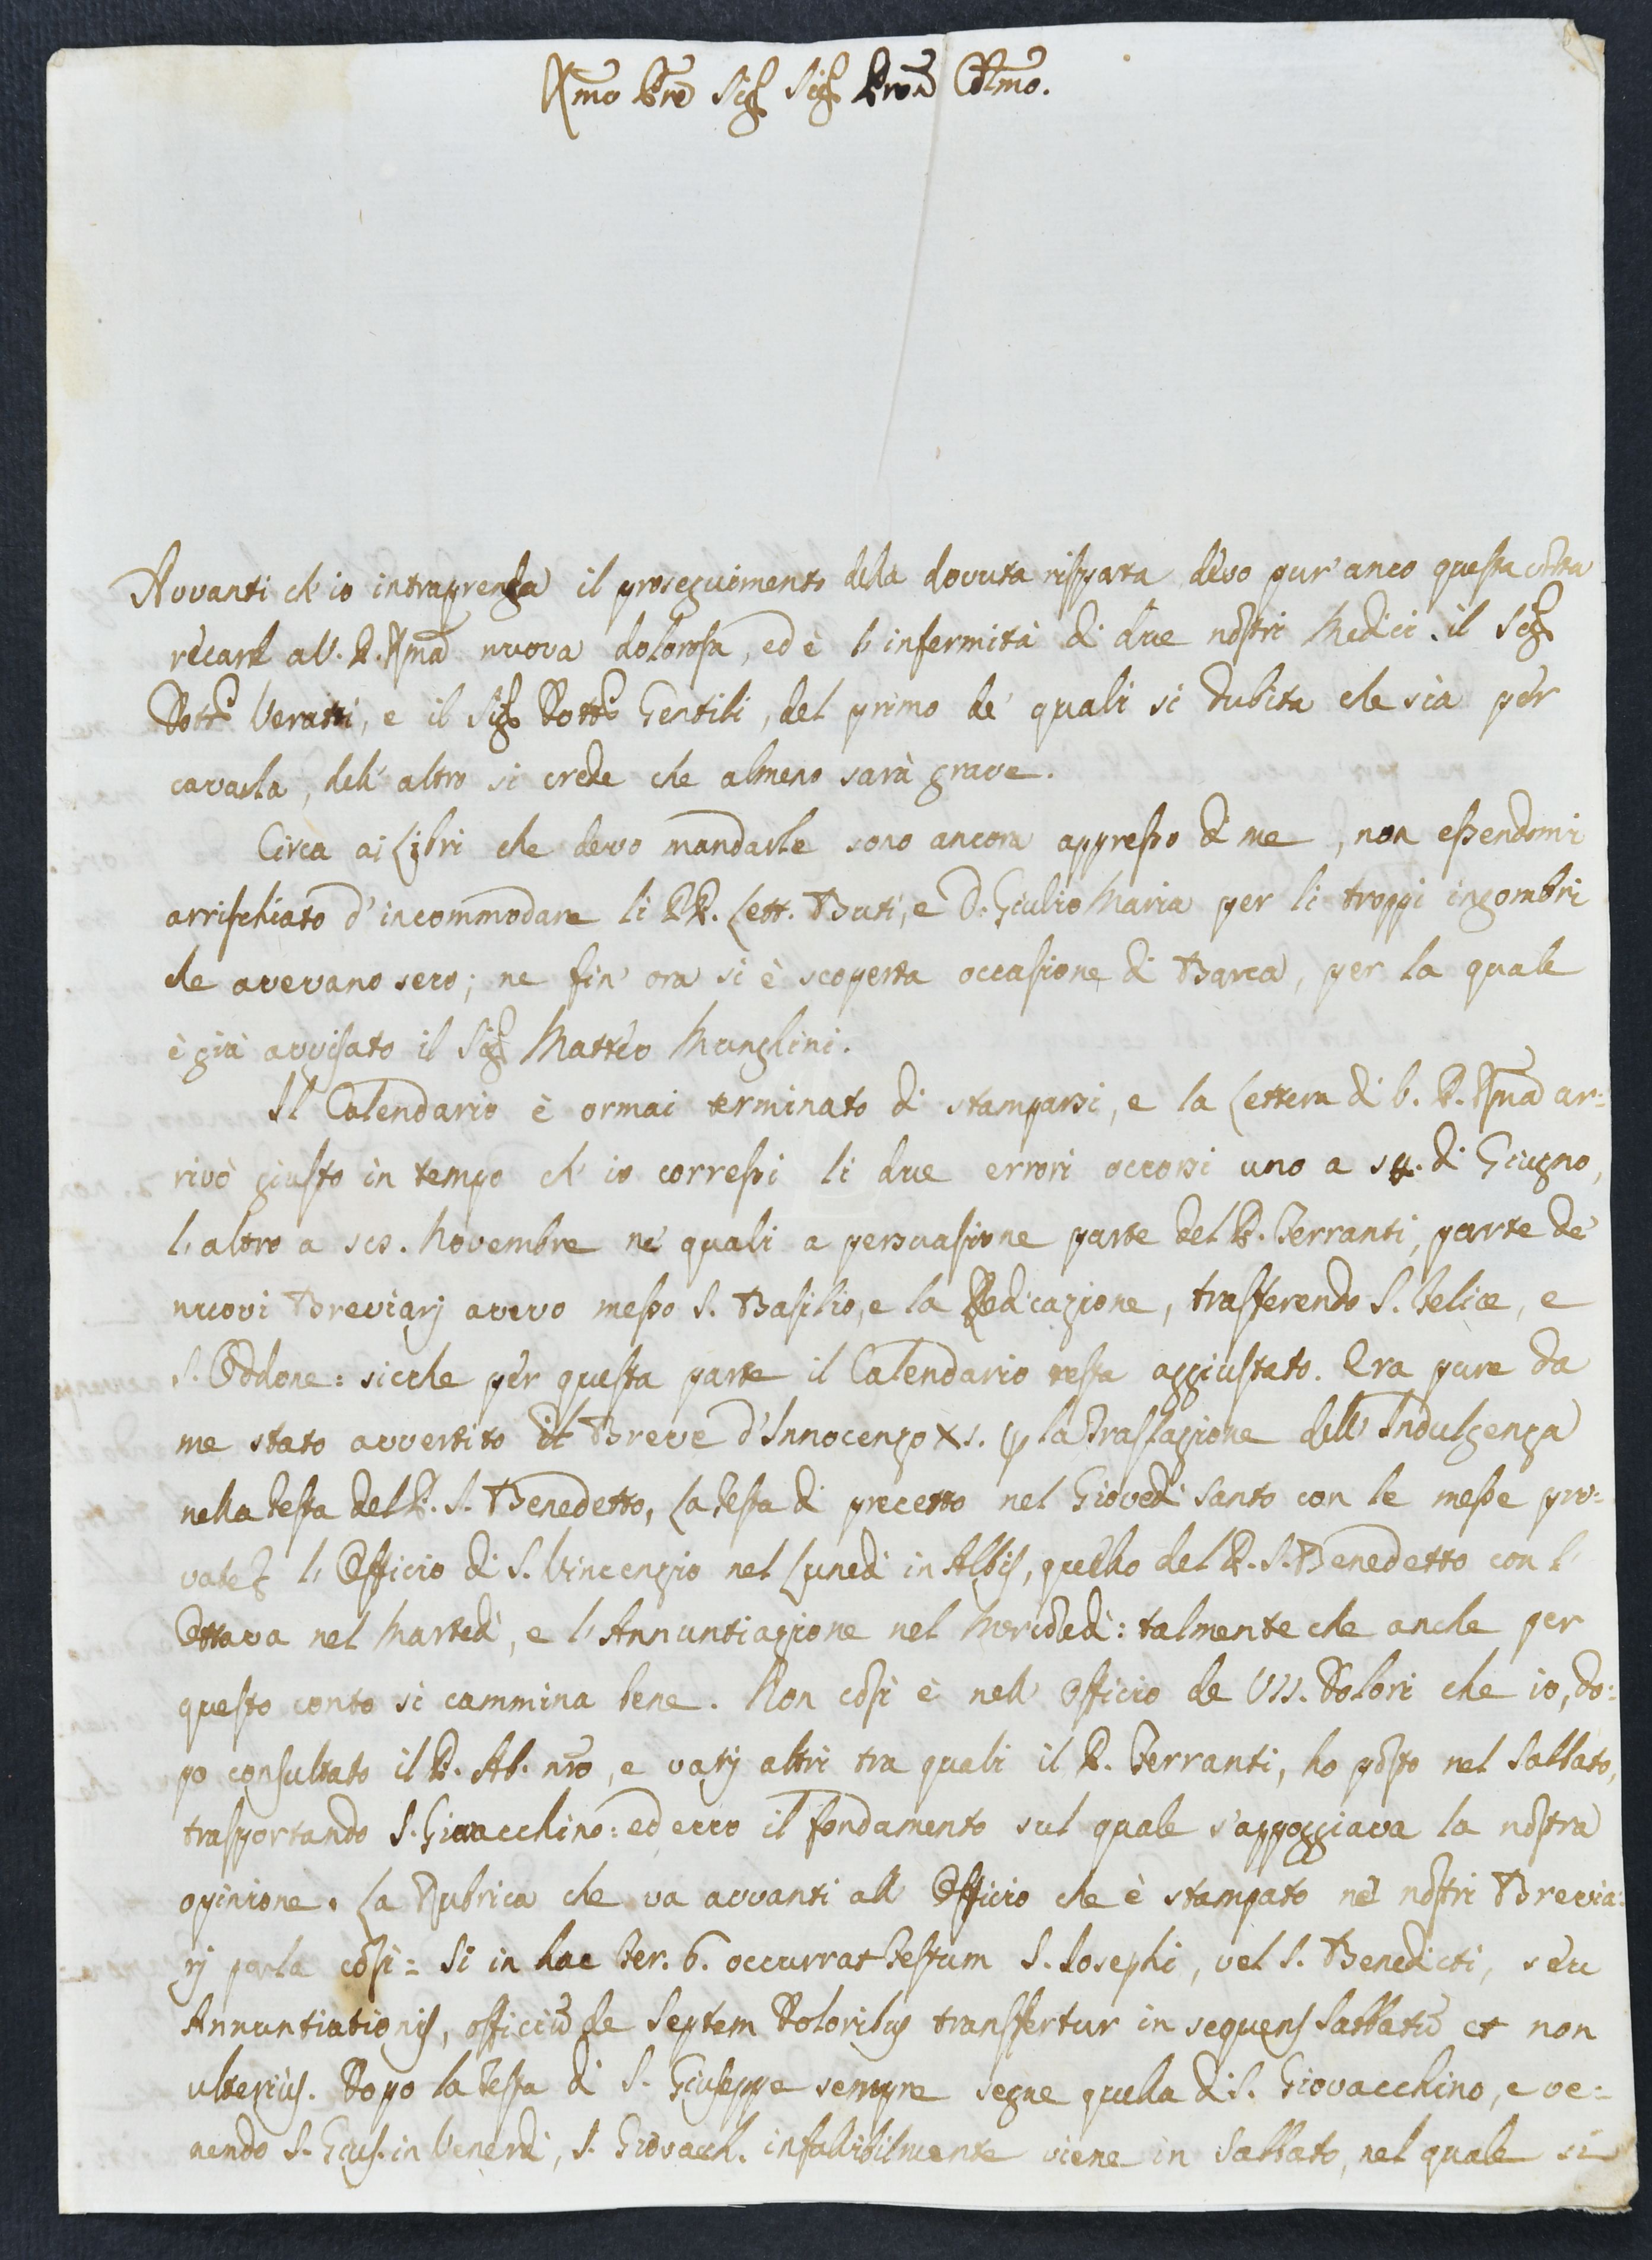 Rmo Pre Sig. Sig. Prone Colmo.
Avvanti ch' io intraprenda il proseguimento della dovuta risposta devo pur' anco questa volta
recare a V. P. Rma nuova dolorosa, ed è l' infermità di due nostri Medici. il Sig.
Dottr Veratti, e il Sig. Dottr Gentili, del primo de' quali si dubita che sia per
cavarla, dell' altro si crede che almeno sarà grave.
Circa ai Libri che devo mandarle sono ancora appresso di me, non essendomi
arrischiato d' incommodare li PP. Lett. Buti, e D. Giulio Maria per li troppi ingombri
che avevano seco; ne fin' ora si è scoperta occasione di Barca, per la quale
è già avvisato il Sig. Matteo Munghini.
Il Calendario è ormai terminato di stamparsi, e la Lettera di V. P. Rma ar=
rivò giusto in tempo ch' io corressi li due errori occorsi uno a 14. di Giugno,
l' altro a 18. Novembre ne' quali a persuasione parte del P. Ferranti, parte de'
nuovi Breviarj avevo messo S. Basilio, e la Dedicazione, trasferendo S. Felice, e
S. Oddone: sicche per questa parte il Calendario resta aggiustato. Era pure da
me stato avvertito il Breve d' Innocenzo XI. p la Traslazione dell' Indulgenza
nella Festa del P. S. Benedetto, la Festa di precetto nel Giovedì Santo con le messe pri=
vate, l' Officio di S. Vincenzio nel Lunedì in Albis, quello del P. S. Benedetto con l'
Ottava nel Martedì, e l' Annuntiazione nel Mercoledì: talmente che anche per
questo conto si cammina bene. Non così è nell' Officio de VII. Dolori che io, do=
po consultato il P. Ab. nro, e varj altri tra quali il P. Ferranti, ho posto nel Sabbato,
trasportando S. Giovacchino: ed ecco il fondamento sul quale s' appoggiava la nostra
opinione. La Rubrica che va avvanti all' Officio che è stampato ne' nostri Brevia=
rj parla così = Si in hac Fer. 6. occurrat Festum S. Iosephi, vel S. Benedicti, seu
Annuntiationis, officiũ de Septem Doloribus transfertur in sequens Sabbatũ et non
ulterius. Dopo la Festa di S. Giuseppe sempre segue quella di S. Giovacchino, e ve=
nendo S. Gius. in Venerdì, S. Giovacch. infallibilmente viene in Sabbato, nel quale si